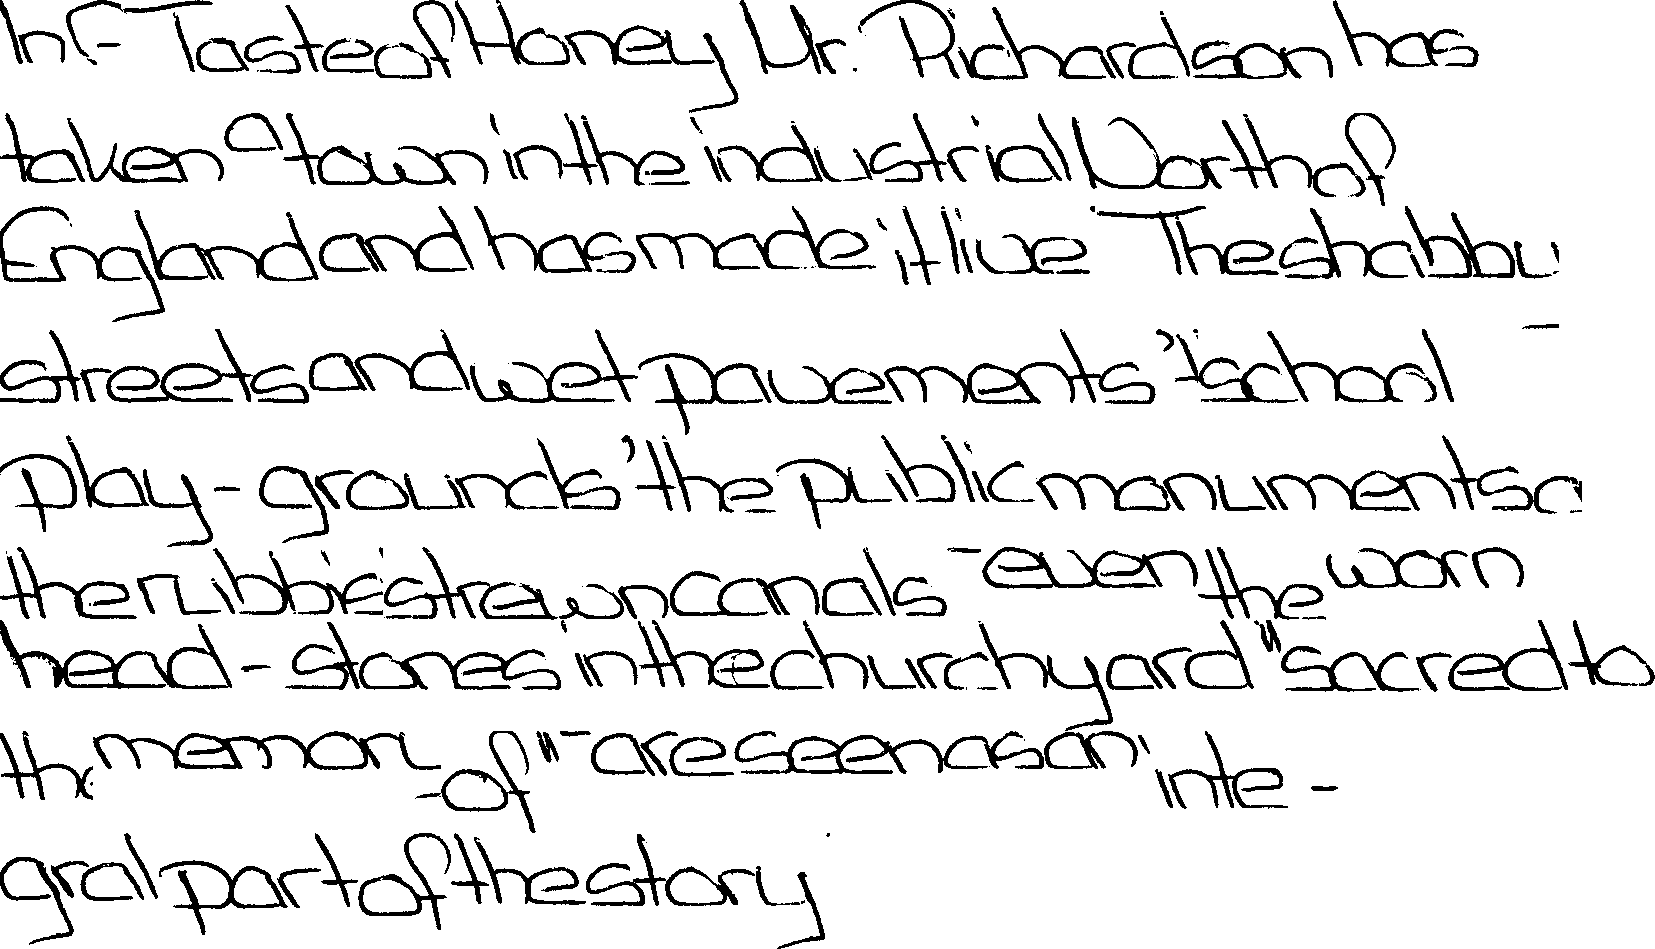 In A Taste of Honey Mr. Richardson has
taken a town in the industrial North of
England and has made it live The shabby
streets and wet pavements, school
play-grounds, the public monuments,
the rubbish-strewn canals - even the worn
head-stones in the churchyard "sacred to
the memory of" - are seen as an inte-
gral part of the story